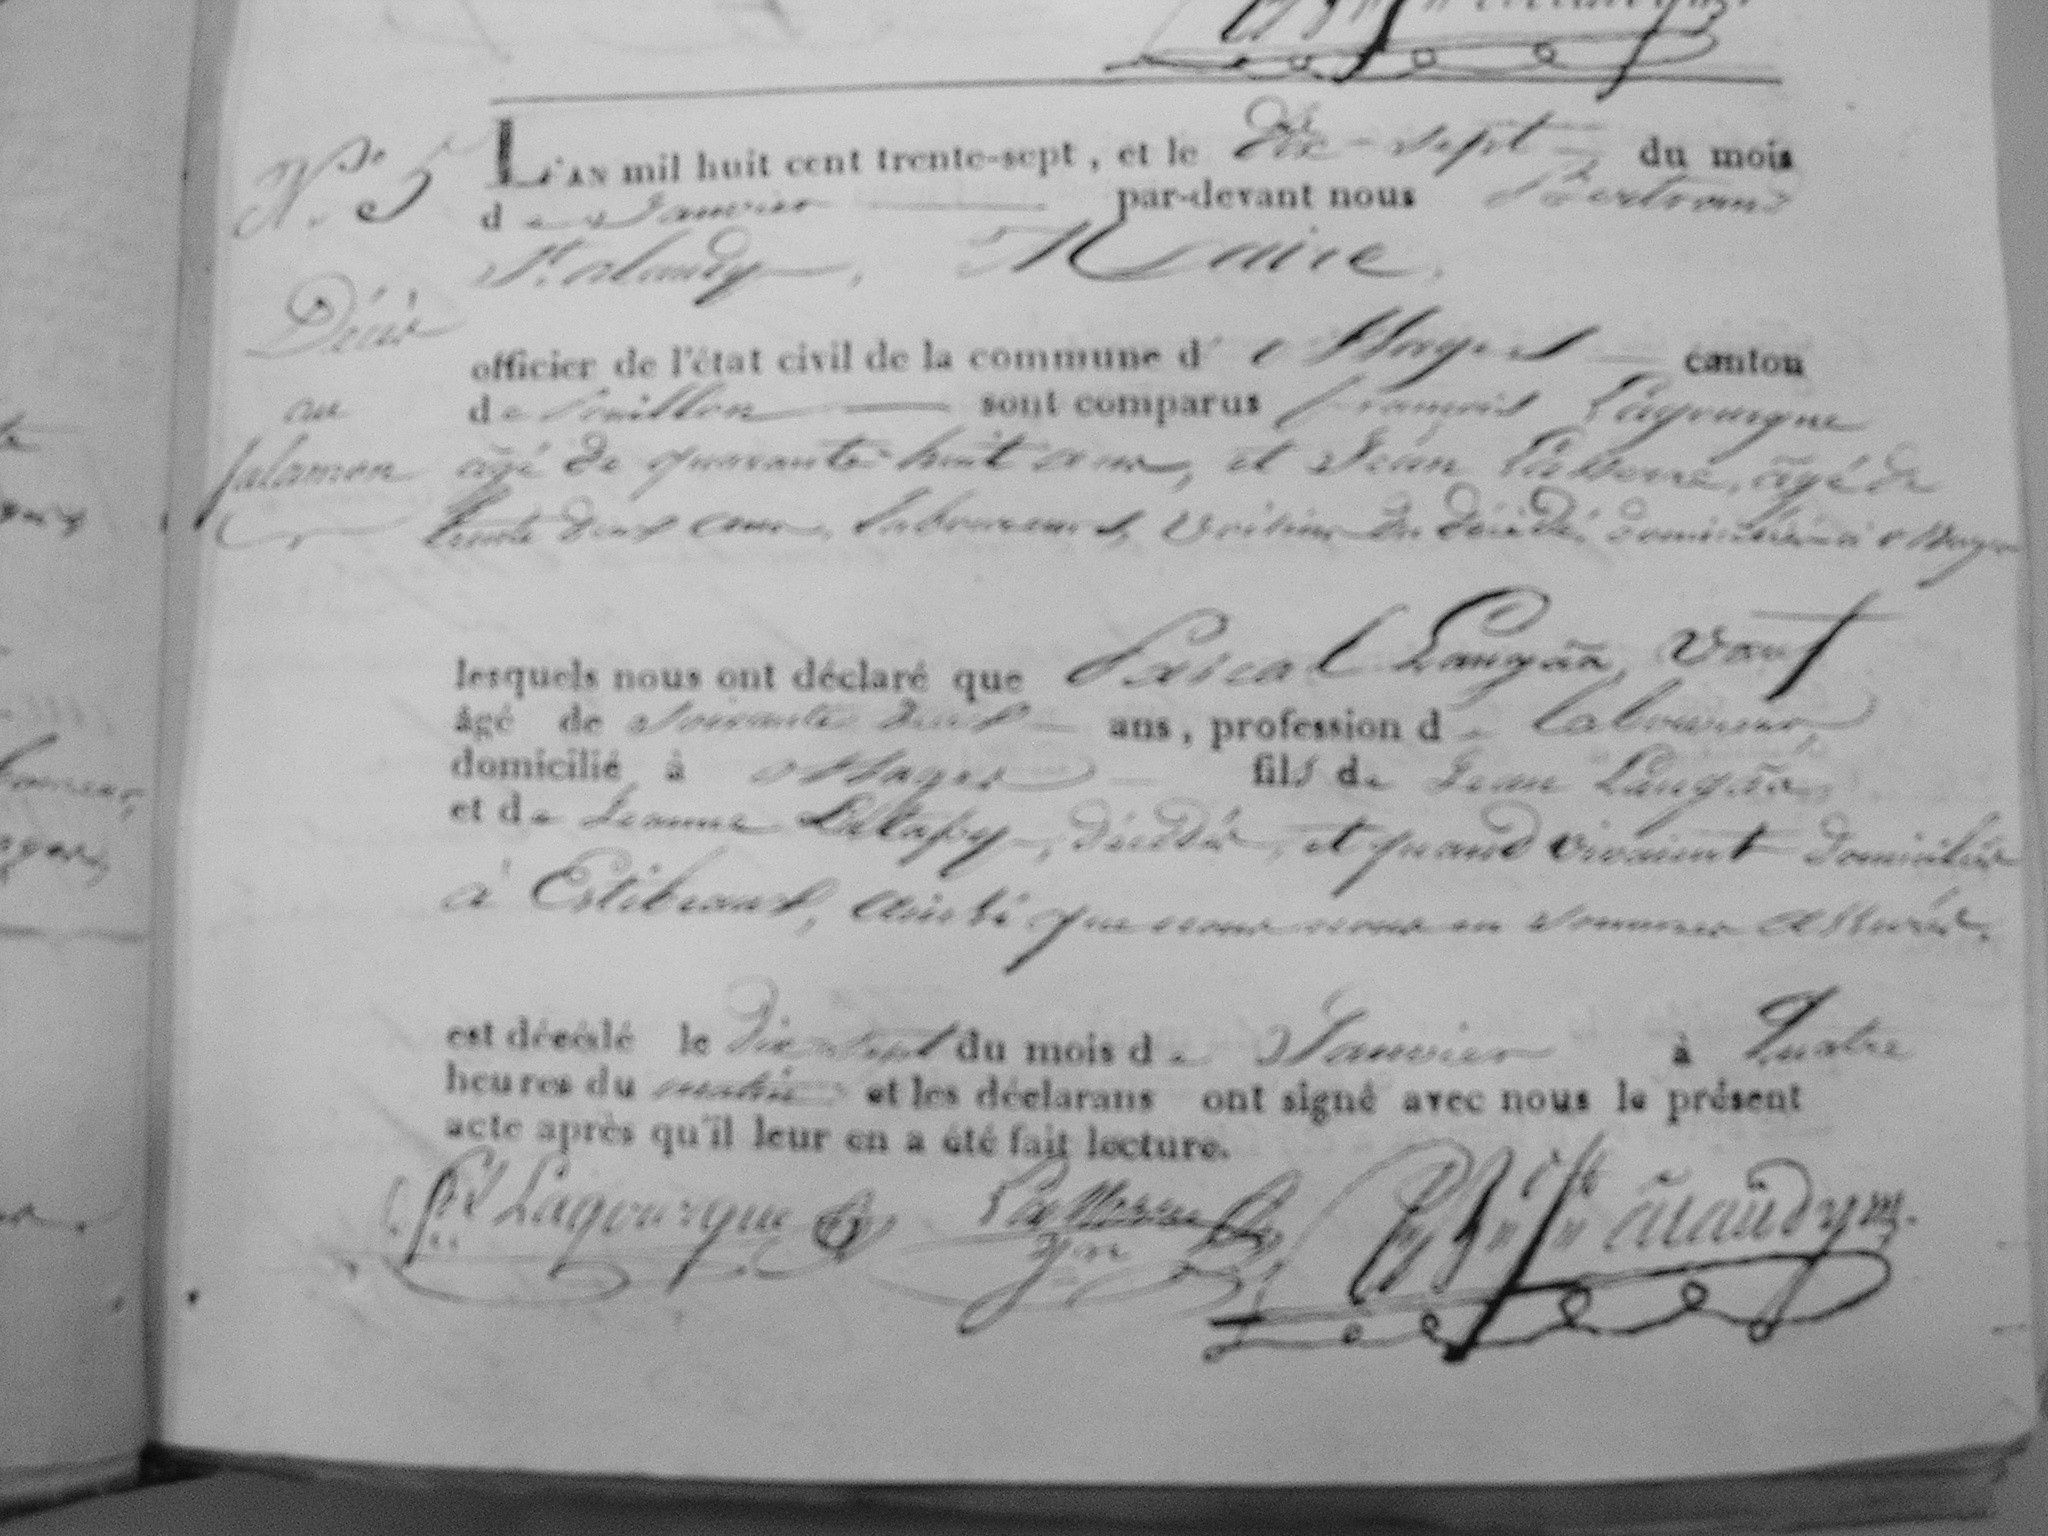 N.º 5
Décès
au
Salamon
L'AN mil huit cent trente-sept, et le dix-sept du mois
de Janvier par-devant nous Bertrand
St. Araudy, Maire,
officier de l'état civil de la commune d'Hages canton
de Pouillon sont comparus françois Lagourgue
âgé de quarante huit ans, et Jean Lasserre, âgé de
trente deux ans, laboureurs, voisins du décédé, domiciliés à
lesquels nous ont déclaré que Pascal Laugãa, vauf
âgé de soixante deux ans, profession de laboureur,
domicilié à fils de Jean Laugãa
et de Jeanne décédés, et quand vivaient domiciliés
à Estibeaux, ainsi que nous nous en sommes assurés.
est décédé le dix sept du mois de Janvier à Quatre
heures du matin et les déclarans ont signé avec nous le présent
acte après qu'il leur en a été fait lecture.
Lagourgue